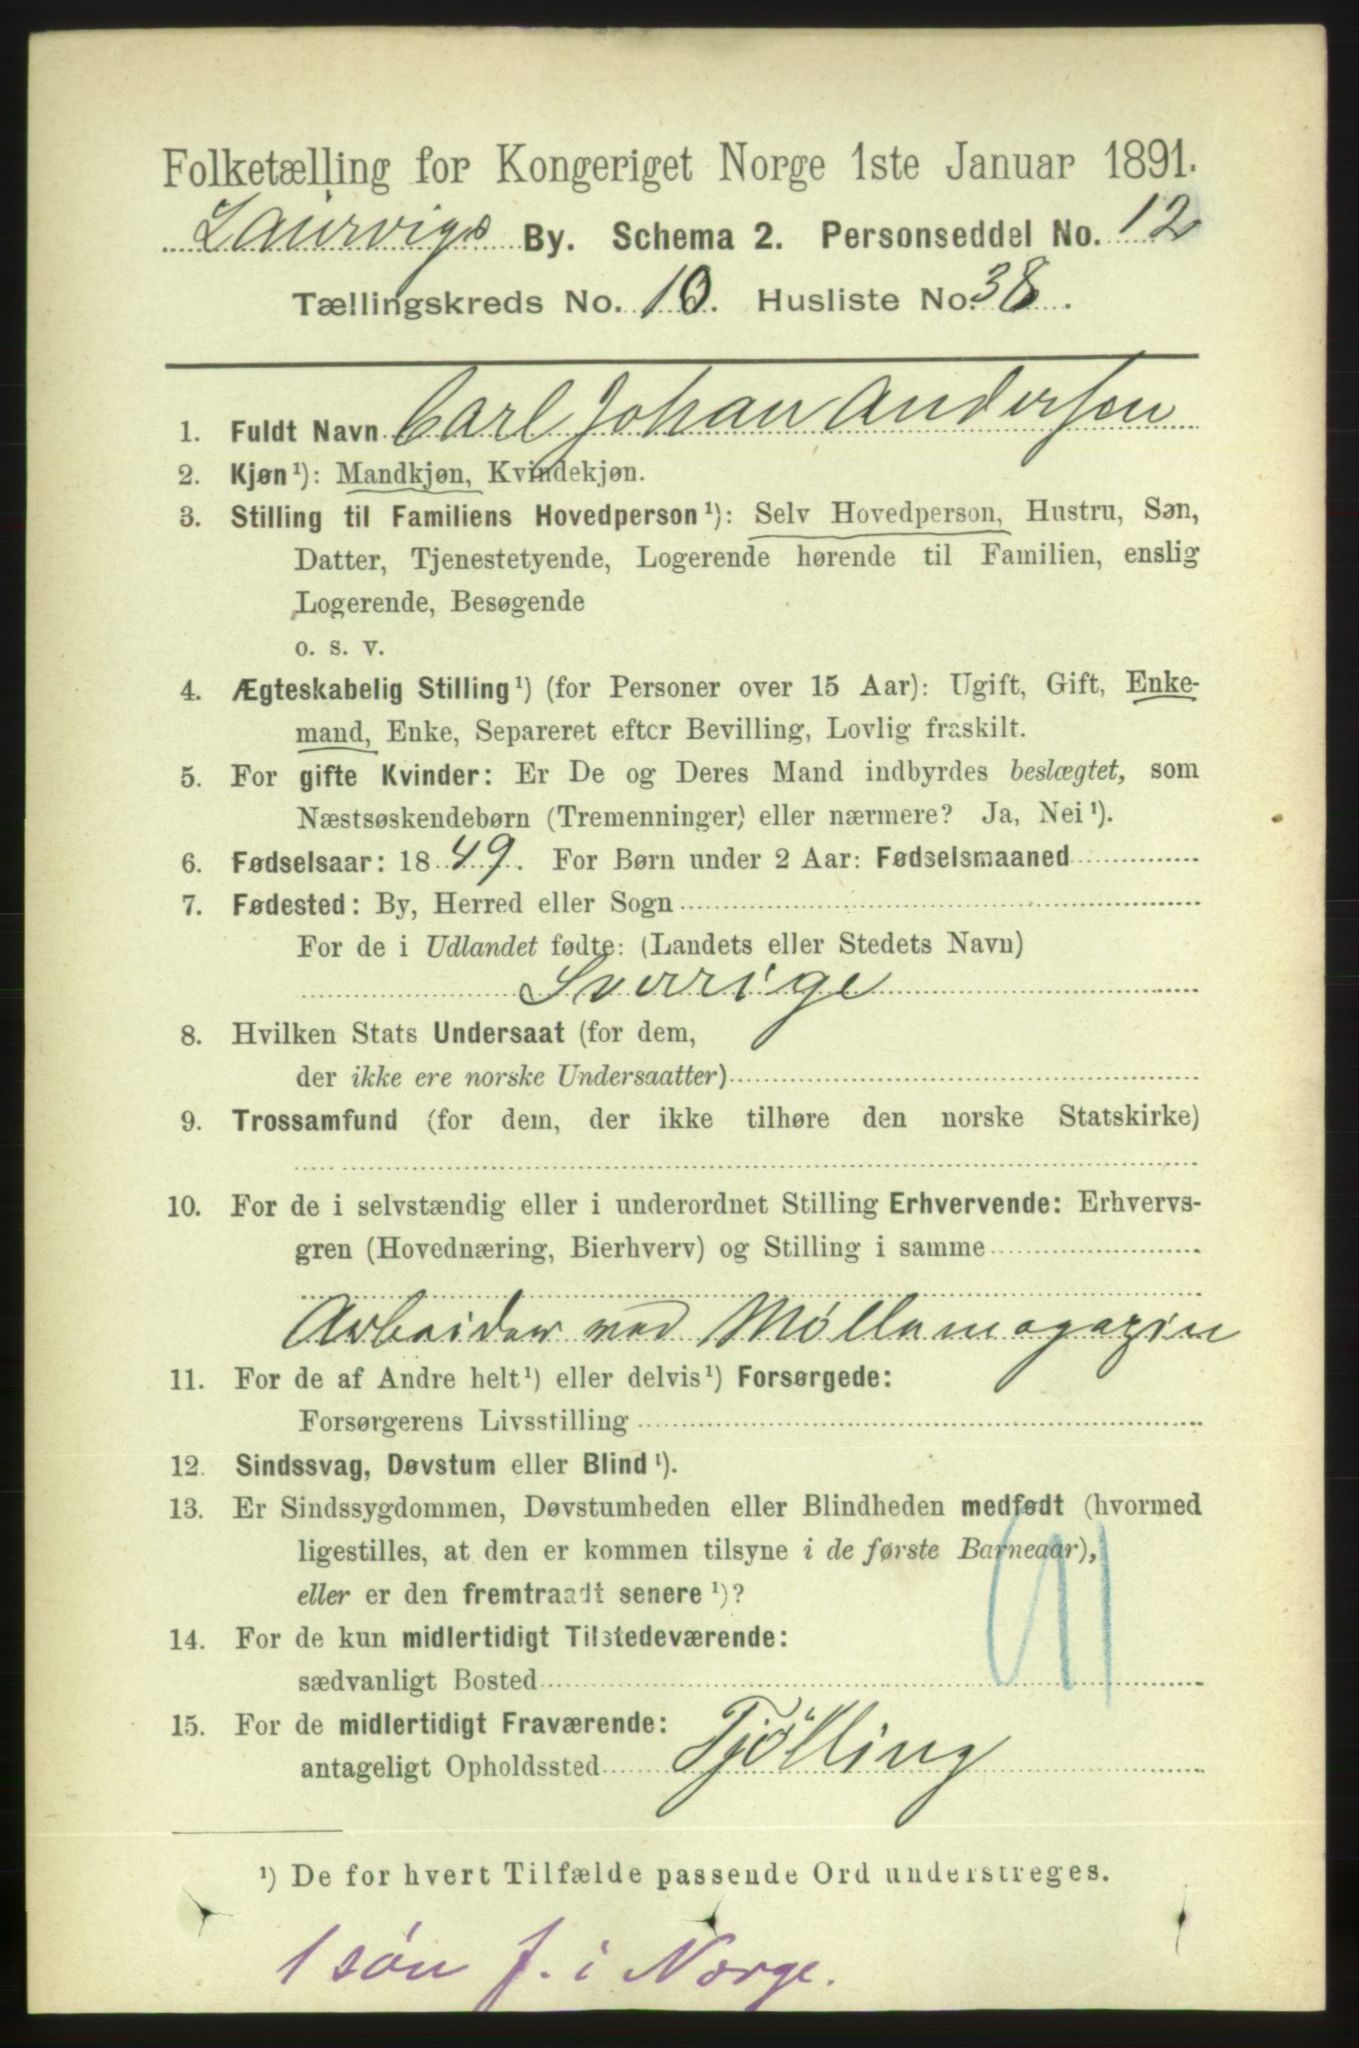 Folketælling for Kongeriget Norge 1ste Januar 1891.
Laurvigs By. Schema 2. Personseddel No. 12
Tællingskreds No. 10. Husliste No. 38.
1. Fuldt Navn Carl Johan Andersen
2. Kjøn¹): Mandkjøn, Kvindekjøn.
3. Stilling til Familiens Hovedperson¹): Selv Hovedperson, Hustru, Søn,
Datter, Tjenestetyende, Logerende hørende til Familien, enslig
Logerende, Besøgende
o. s. v.
4. Ægteskabelig Stilling¹) (for Personer over 15 Aar): Ugift, Gift, Enke-
mand, Enke, Separeret efter Bevilling, Lovlig fraskilt.
5. For gifte Kvinder: Er De og Deres Mand indbyrdes beslægtet, som
Næstsøskendebørn (Tremenninger) eller nærmere? Ja, Nei¹).
6. Fødselsaar: 1849. For Børn under 2 Aar: Fødselsmaaned
7. Fødested: By, Herred eller Sogn
For de i Udlandet fødte: (Landets eller Stedets Navn)
Sverrige
8. Hvilken Stats Undersaat (for dem,
der ikke ere norske Undersaatter)
9. Trossamfund (for dem, der ikke tilhøre den norske Statskirke)
10. For de i selvstændig eller i underordnet Stilling Erhvervende: Erhvervs-
gren (Hovednæring, Bierhverv) og Stilling i samme
Arbeider ved Møllemagazin
11. For de af Andre helt¹) eller delvis¹) Forsørgede:
Forsørgerens Livsstilling
12. Sindssvag, Døvstum eller Blind¹).
13. Er Sindssygdommen, Døvstumheden eller Blindheden medfødt (hvormed
ligestilles, at den er kommen tilsyne i de første Barneaar),
eller er den fremtraadt senere¹)?
14. For de kun midlertidigt Tilstedeværende:
sædvanligt Bosted
15. For de midlertidigt Fraværende:
antageligt Opholdssted Tjölling
¹) De for hvert Tilfælde passende Ord understreges.
1 søn f. i Norge.